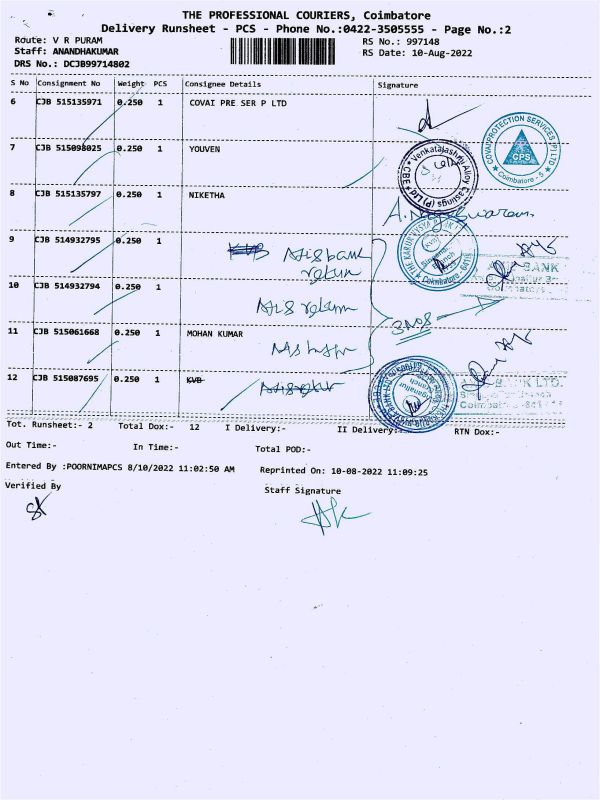 THE PROFESSIONAL COURIERS, Coimbatore
Delivery Runsheet - PCS - Phone No.:0422-3505555 - Page No.:2
Route: V R PURAM
RS No.: 997148
Staff: ANANDHAKUMAR
RS Date: 10-Aug-2022
DRS No.: DCJB99714802
S No Consignment No Weight PCS Consignee Details Signature
6 CJB 515135971 0.250 1 COVAI PRE SER P LTD
COVAI PROTECTION SERVICES (P) LTD
CPS
Coimbatore - 5
7 CJB 515098025 0.250 1 YOUVEN
Venkatajashri Alloy Casings (P) Ltd
CBE
8 CJB 515135797 0.250 1 NIKETHA
THE KARUR VYSYA BANK
9 CJB 514932795 0.250 1 KVB Axis bank
return
10 CJB 514932794 0.250 1 Axis return
3 NOS
BANK
11 CJB 515061668 0.250 1 MOHAN KUMAR
12 CJB 515087695 0.250 1 KVB
BANK LTD.
Tot. Runsheet:- 2 Total Dox:- 12 I Delivery:- II Delivery:- RTN Dox:-
Out Time:- In Time:- Total POD:-
Entered By :POORNIMAPCS 8/10/2022 11:02:50 AM Reprinted On: 10-08-2022 11:09:25
Verified By
Staff Signature